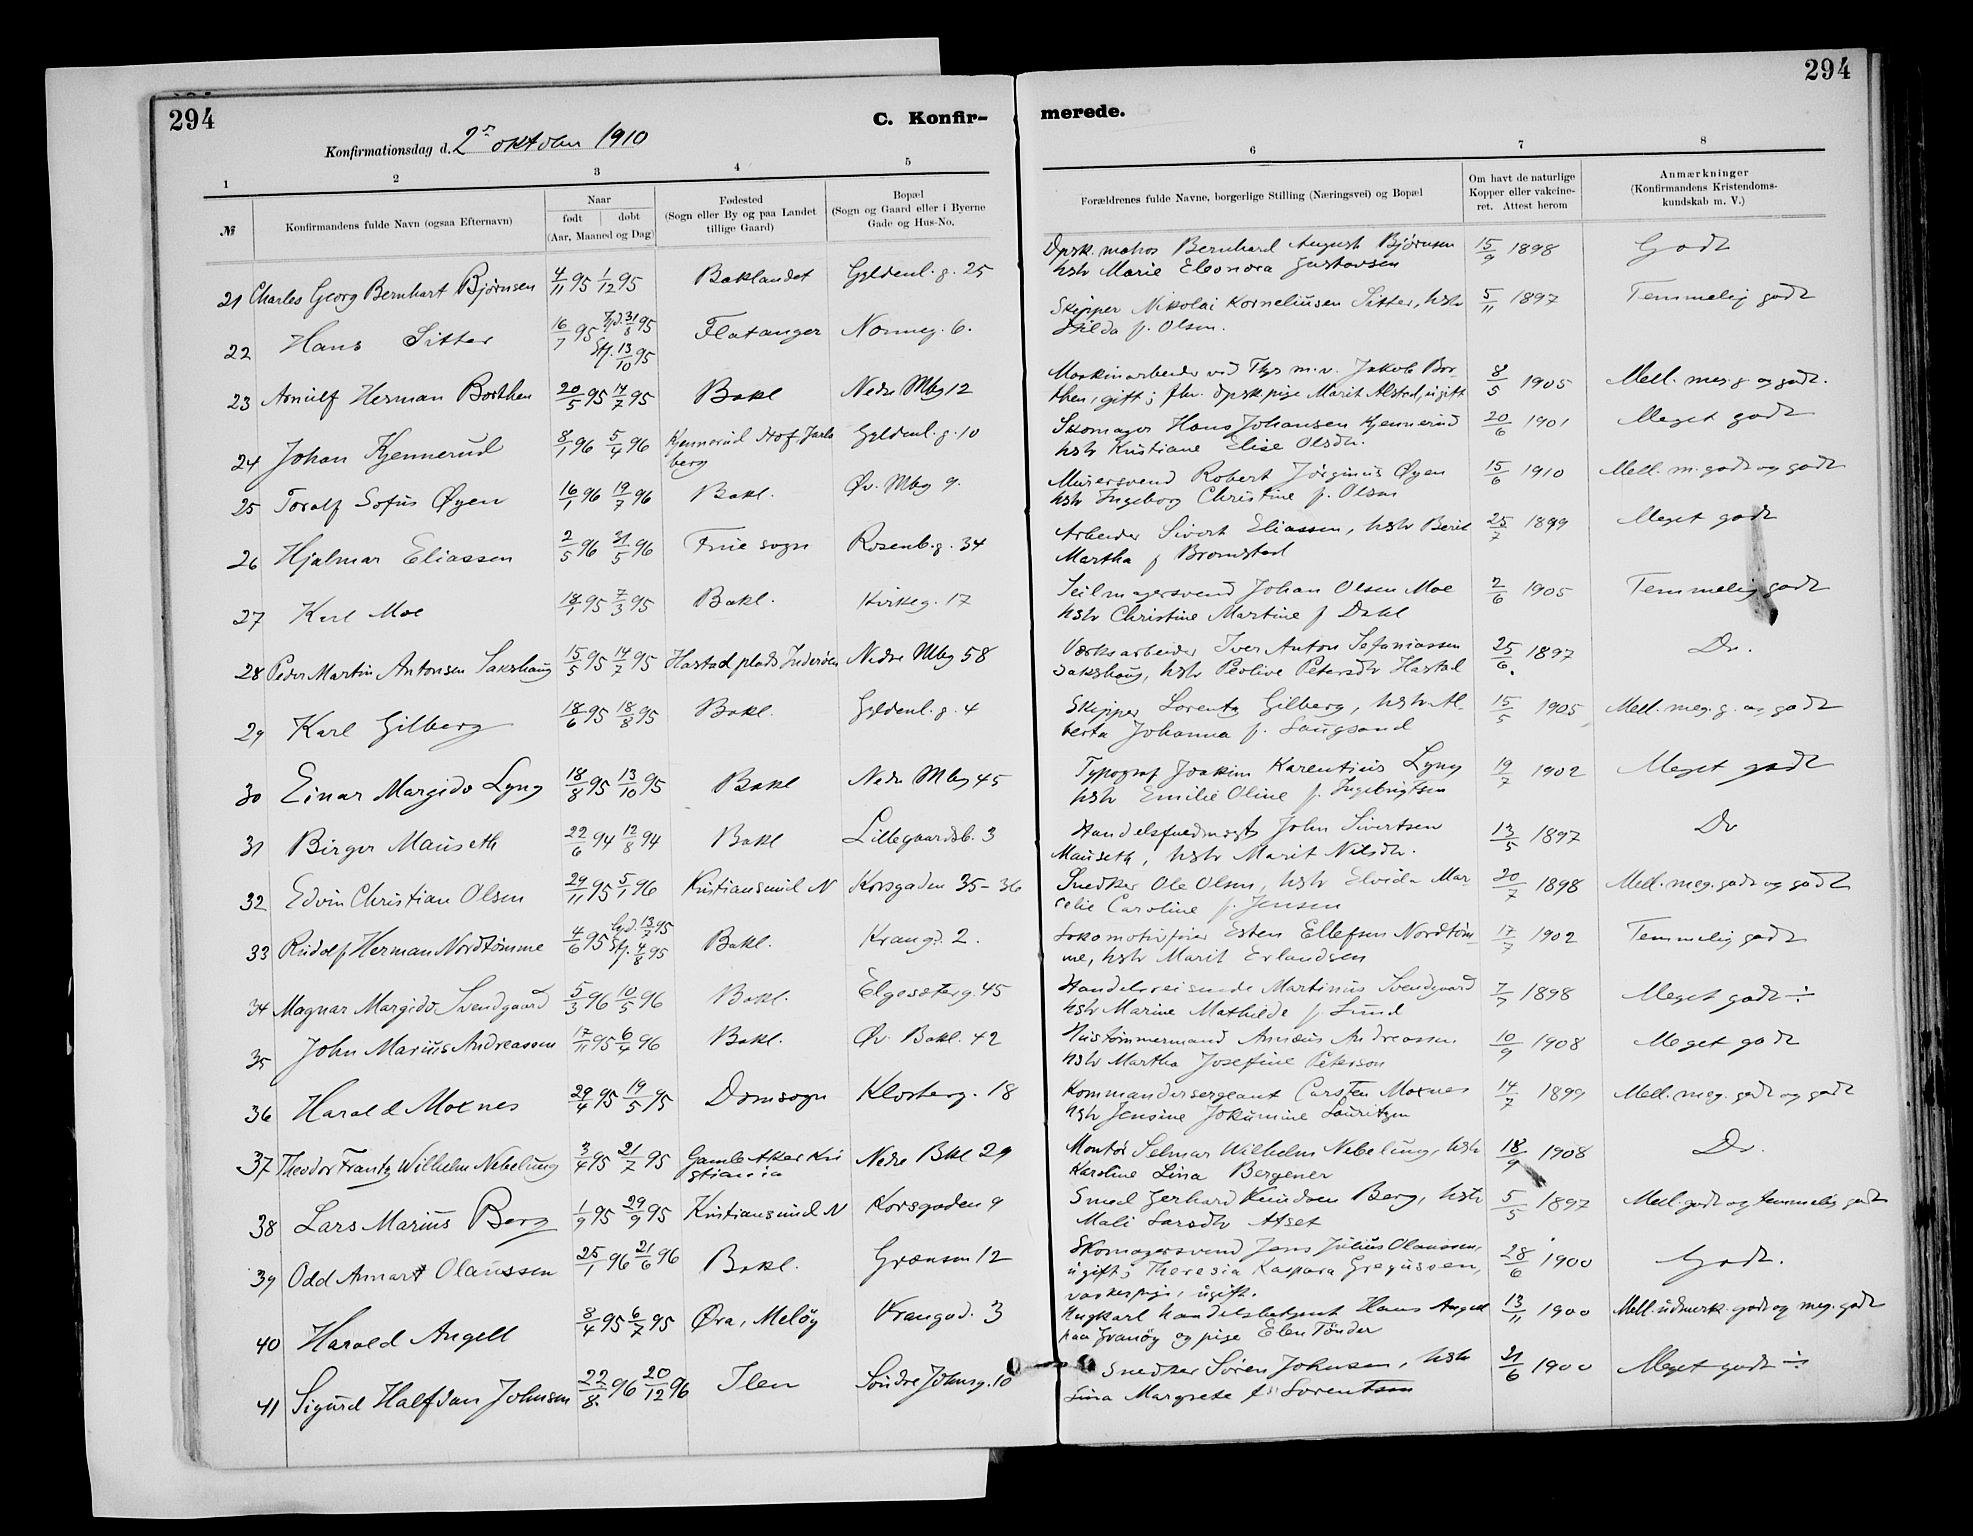 294
294
C. Konfirmerede.
Konfirmationsdag d. 2n oktober 1910
1 2 3 4 5 6 7 8
№ Konfirmandens fulde Navn (ogsaa Efternavn) Naar født døbt (Aar, Maaned og Dag) Fødested (Sogn eller By og paa Landet tillige Gaard) Bopæl (Sogn og Gaard eller i Byerne Gade og Hus-No. Forældrenes fulde Navne, borgerlige Stilling (Næringsvei) og Bopæl Om havt de naturlige Kopper eller vakcineret. Attest herom Anmærkninger (Konfirmandens Kristendomskundskab m. V.)
21 Charles Georg Bernhart Bjørnsen 4/11 95 1/12 95 Baklandet Gyldenl. g. 25 Dpsk. matros Bernhard August Bjørnsen hstr Marie Eleonora Gustavsen 15/9 1898 Godt
22 Hans Sitter 16/7 95 Hjd. 31/8 95 Stf. 13/10 95 Flatanger Nonneg. 6. Skipper Nikolai Korneliusen Sitter, hstr Hilda f. Olsen. 5/11 1897 Temmelig godt
23 Arnulf Herman Borthen 20/5 95 14/7 95 Bakl Nedre Mbg 12 Maskinarbeider ved Thjs m.v. Jakob Borthen, gift; fhv. dpsk.pige Marit Alstad, ugift 8/5 1905 Mell. meg. g og godt.
24 Johan Kjennerud 8/1 96 5/4 96 Kjennerud Hof Jarlsberg Gyldenl. g. 10 Skomager Hans Johansen Kjennerud hstr Kristiane Elise Olsdtr. 20/6 1901 Meget godt
25 Toralf Sofus Øyen 16/1 96 19/7 96 Bakl. Øv. Mbg 9. Murersvend Robert Jørginus Øyen hstr Ingeborg Christine f. Olsen 15/6 1910 Mell. m. godt og godt
26 Hjalmar Eliassen 2/5 96 31/5 96 Frue sogn Rosenb. g. 34 Arbeider Sivert Eliassen, hstr Berit Martha f Bromstad 25/7 1899 Meget godt
27 Karl Moe 18/1 95 7/3 95 Bakl. Kirkeg. 17 Seilmagersvend Johan Olsen Moe hstr Christine Martine f Dahl 2/6 1905 Temmelig godt
28 Peder Martin Antonsen Sakshaug 15/5 95 14/7 95 Hastad plads Inderøen Nedre Mbg 58 Værksarbeider Iver Anton Sefaniassen Sakshaug, hstr Peoline Petersdtr Hastad 25/6 1897 Do.
29 Karl Gilberg 18/6 95 18/8 95 Bakl. Gyldenl. g. 4 Skipper Lorentz Gilberg, hstr Alberta Johanna f. Laugsand 15/5 1905 Mell. meg. g. og godt
30 Einar Margido Lyng 18/8 95 13/10 95 Bakl Nedre Mbg 45 Typograf Joakim Karentius Lyng hstr Emilie Oline f. Ingebrigtsen 19/7 1902 Meget godt
31 Birger Mauseth 22/6 94 12/8 94 Bakl Lillegaardsb. 3 Handelsfuldmægt. John Sivertsen Mauseth, hstr Marit Nilsdtr. 13/5 1897 Do
32 Edvin Christian Olsen 29/11 95 5/1 96 Kristiansund N Korsgaden 35-36 Snedker Ole Olsen, hstr Elvida Marcelie Caroline f. Jensen 20/7 1898 Mell. meg. godt og godt
33 Rudolf Herman Nordtømme 4/6 95 Hjd. 13/7 95 Stf. 4/8 95 Bakl. Krangd. 2. Lokomotivfører Esten Ellefsen Nordtømme, hstr Marit Erlandsen 17/7 1902 Temmelig godt
34 Magnar Margido Svendgaard 5/3 96 10/5 96 Bakl. Elgesæterg. 45 Handelsreisende Martinus Svendgaard hstr Marine Mathilde f. Lund 7/7 1898 Meget godt ÷
35 John Marius Andreassen 17/11 95 6/4 96 Bakl. Øv. Bakl. 42 Hustømmermand Annæus Andreassen hstr Martha Josefine Peterson 10/9 1908 Meget godt
36 Harald Moxnes 29/4 95 19/5 95 Domsogn Klosterg. 18 Kommandersergeant Carsten Moxnes hstr Jensine Jokumine Lauritzen 14/7 1899 Mell. meg. godt og godt
37 Theodor Frantz Wilhelm Nebelung 3/4 95 21/7 95 Gamle Aker Kristiania Nedre Bkl 29 Montør Selmar Wilhelm Nebelung, hstr Karoline Lina Bergener 18/9 1908 Do.
38 Lars Marius Berg 1/9 95 29/9 95 Kristiansund N Korsgaden 9 Smed Gerhard Knudsen Berg, hstr Mali Larsdtr Atset 5/5 1897 Mell. godt og temmelig godt
39 Odd Annart Olaussen 25/1 96 21/6 96 Bakl. Grænsen 12 Skomagersvend Jens Julius Olaussen, ugift; Theresia Kaspara Gregussen, vaskerpige, ugift. 28/6 1900 Godt.
40 Harald Angell 8/4 95 6/7 95 Øra, Meløy Krangd. 3 Ungkarl handelsbetjent Hans Angell paa Grønøy og pige Elen Tønder 13/11 1900 Mell. udmerk. godt og meg. godt
41 Sigurd Halfdan Johnsen 22/8 96 20/12 96 Ilen Søndre Johnsg. 10 Snedker Søren Johnsen, hstr Lina Margrete f. Lorentsen 21/6 1900 Meget godt ÷